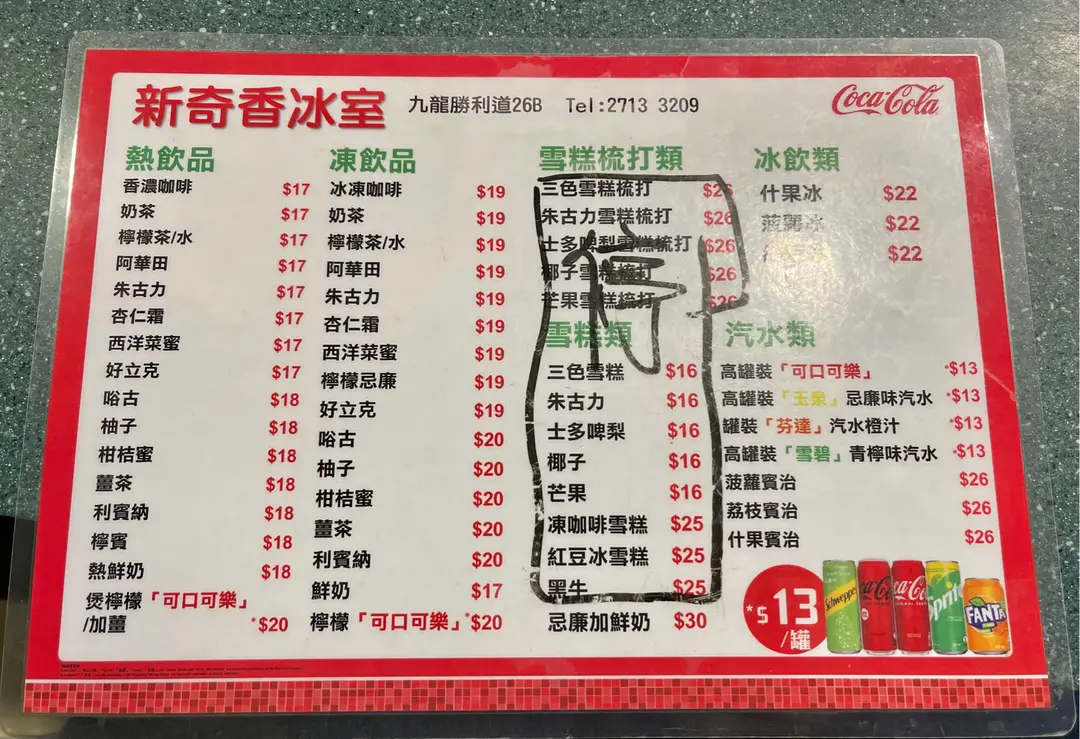 新奇香冰室 九龍勝利道26B Tel:2713 3209
Coca-Cola
熱飲品
香濃咖啡 $17
奶茶 $17
檸檬茶/水 $17
阿華田 $17
朱古力 $17
杏仁霜 $17
西洋菜蜜 $17
好立克 $17
唂古 $18
柚子 $18
柑桔蜜 $18
薑茶 $18
利賓納 $18
檸賓 $18
熱鮮奶 $18
煲檸檬「可口可樂」
/加薑 *$20
凍飲品
冰凍咖啡 $19
奶茶 $19
檸檬茶/水 $19
阿華田 $19
朱古力 $19
杏仁霜 $19
西洋菜蜜 $19
檸檬忌廉 $19
好立克 $19
唂古 $20
柚子 $20
柑桔蜜 $20
薑茶 $20
利賓納 $20
鮮奶 $17
檸檬「可口可樂」*$20
雪糕梳打類
三色雪糕梳打 $26
朱古力雪糕梳打 $26
士多啤梨雪糕梳打 $26
椰子雪糕梳打 $26
芒果雪糕梳打 $26
停
雪糕類
三色雪糕 $16
朱古力 $16
士多啤梨 $16
椰子 $16
芒果 $16
凍咖啡雪糕 $25
紅豆冰雪糕 $25
黑牛 $25
忌廉加鮮奶 $30
冰飲類
什果冰 $22
菠蘿冰 $22
$22
汽水類
高罐裝「可口可樂」 *$13
高罐裝「玉泉」忌廉味汽水 *$13
罐裝「芬達」汽水橙汁 *$13
高罐裝「雪碧」青檸味汽水 *$13
菠蘿賓治 $26
荔枝賓治 $26
什果賓治 $26
*$13/罐
Schweppes
Coca-Cola
Coca-Cola
Sprite
FANTA